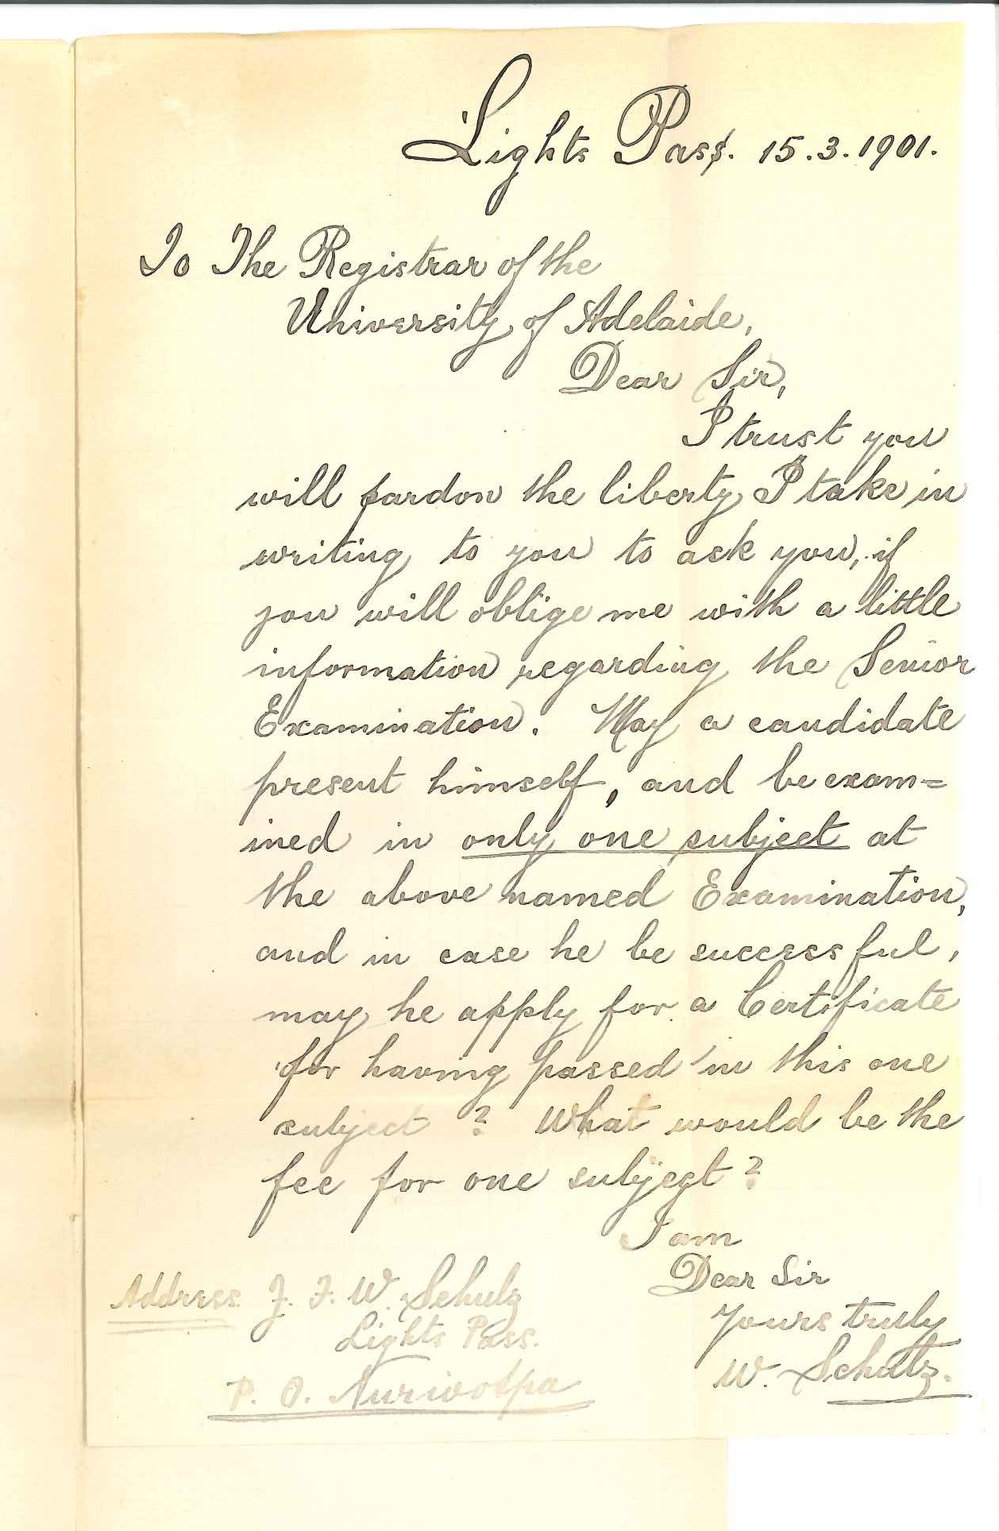 Lights Pass. 15.3.1901.
To The Registrar of the
University of Adelaide,
Dear Sir,
I trust you
will pardon the liberty I take in
writing to you to ask you, if
you will oblige me with a little
information regarding the Senior
Examination. May a candidate
present himself, and be exam=
ined in only one subject at
the above named Examination,
and in case he be successful,
may he apply for a Certificate
for having passed in this one
subject? What would be the
fee for one subject?
I am
Dear Sir
Yours truly
W. Schulz.
Address J. F. W. Schulz
Lights Pass.
P. O. Nuriootpa